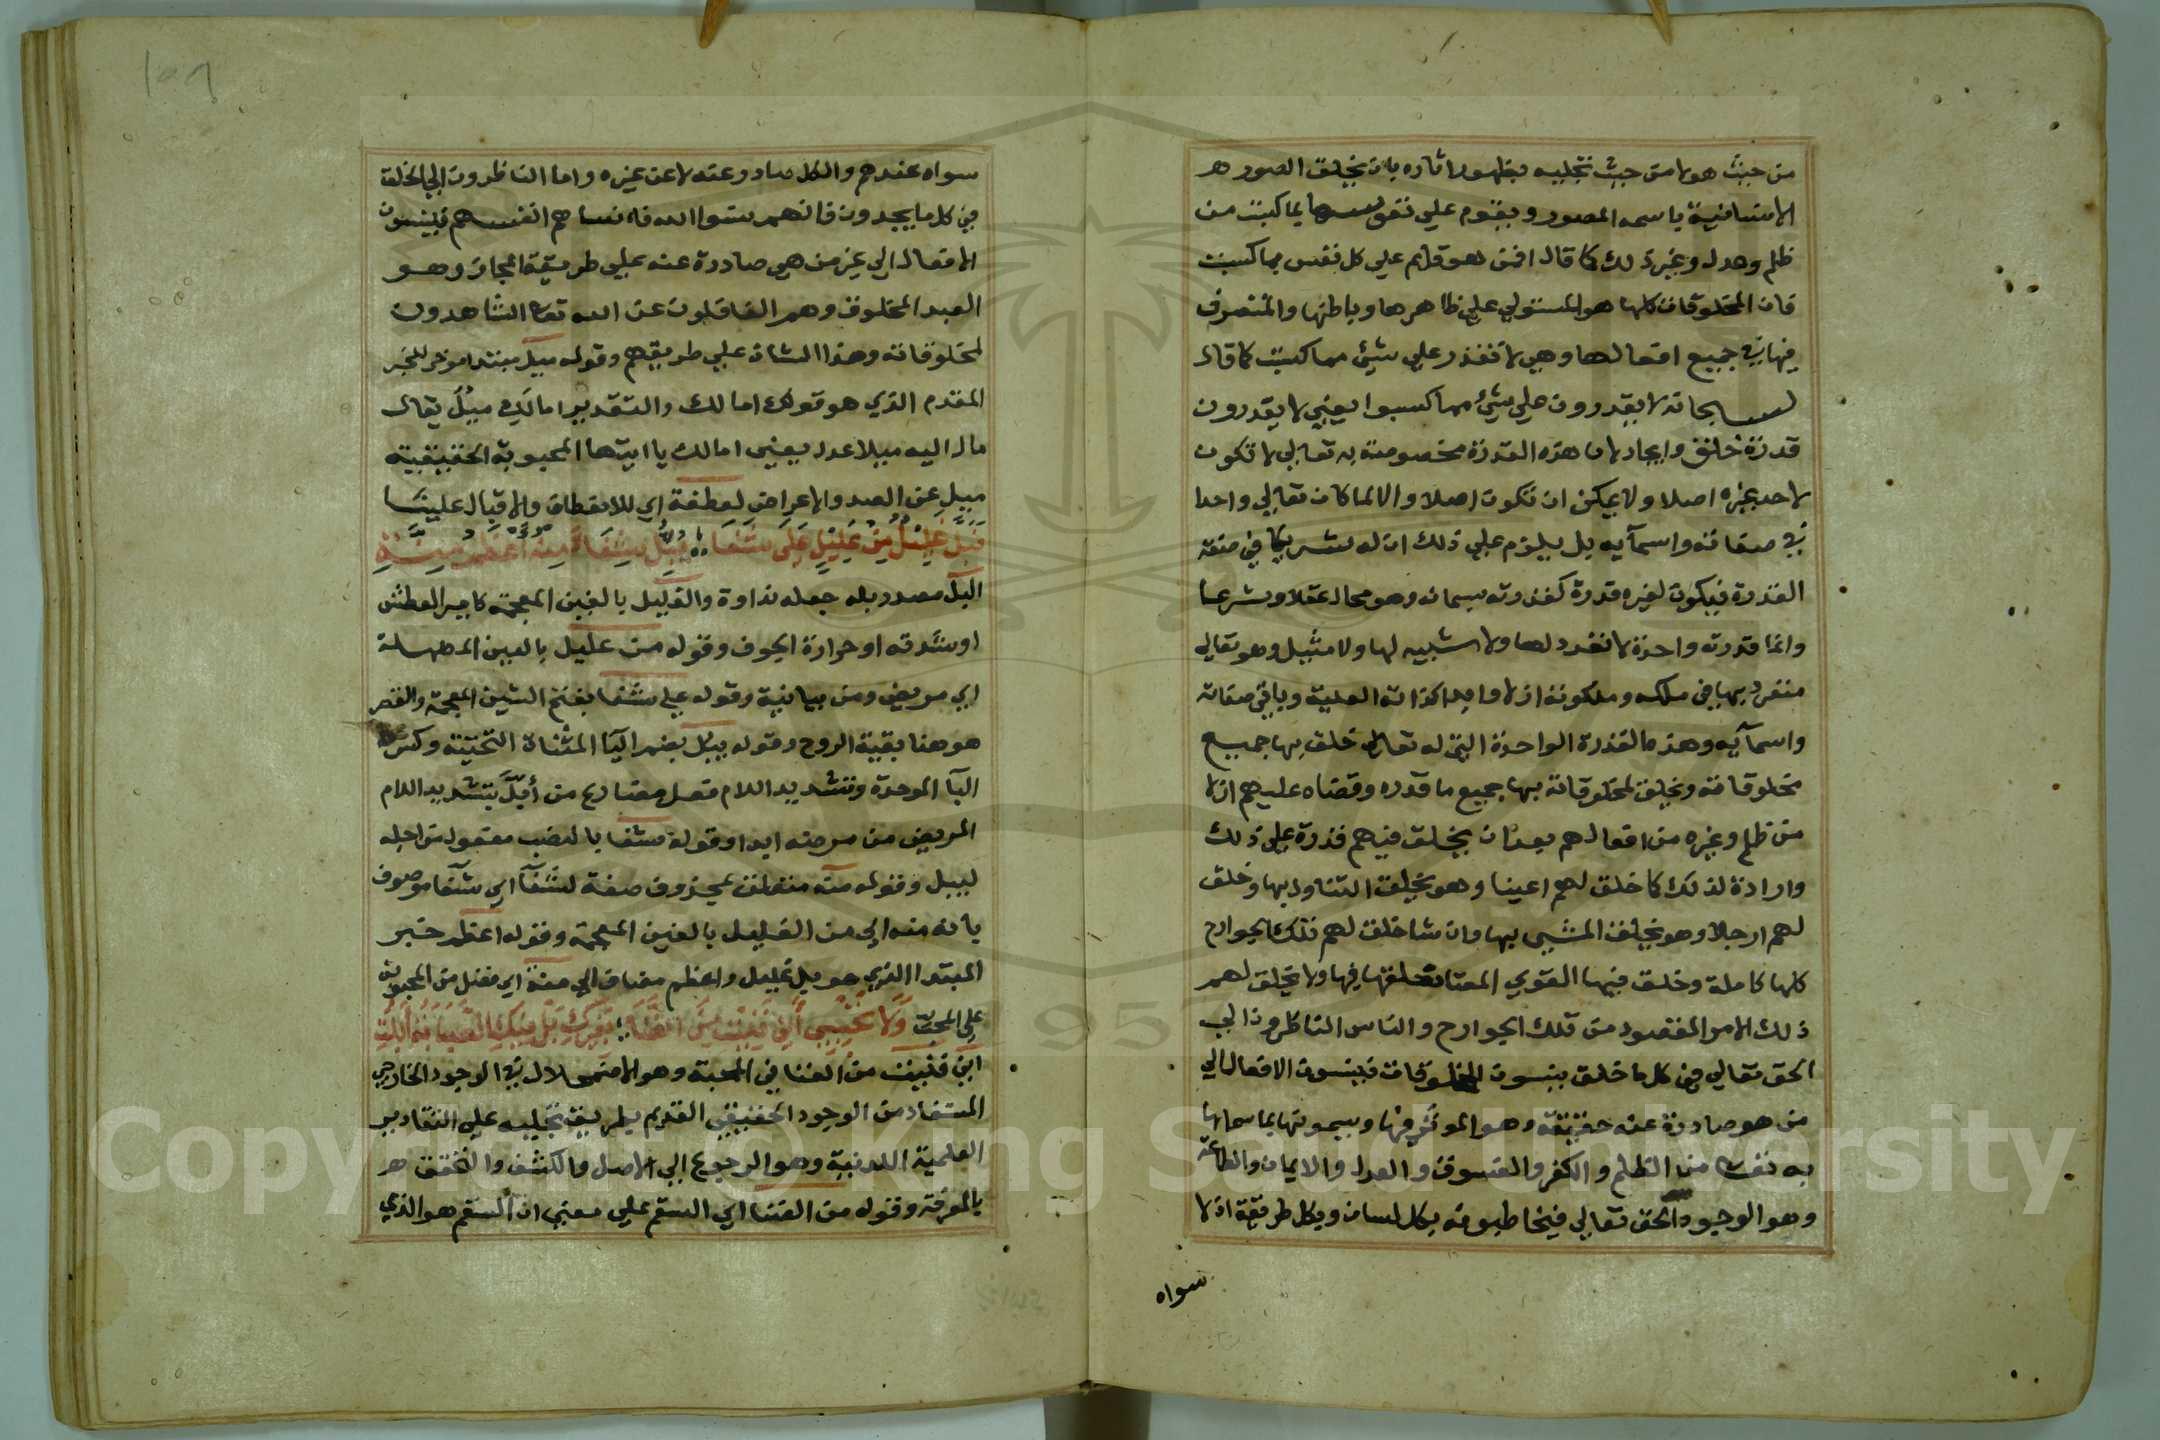 من حيث هو لا من حيث تجليه بظهور اثاره بان يخلق الصور هر
الانسانية باسمه المصور ويقوم علي نفوسها بما كسبت من
ظلم وعدل وغير ذلك كما قال افمن هو قايم علي كل نفس بما كسبت
فان المخلوقات كلها هو المستولي علي ظاهرها وباطنها والمتصرف
فيها في جميع افعالها وهي لا تقدر علي شيئ مما كسبت كما قال
سبحانه لا يقدرون علي شيئ مما كسبوا يعني لا يقدرون
قدرة خلق وايجاد لان هذه القدرة مخصوصة به تعالي لا تكون
لاحد غيره اصلا ولا يمكن ان تكون اصلا والا لما كان تعالي واحدا
في صفاته واسمآيه بل يلزم علي ذلك ان له شريكا في صفة
القدرة فيكون لغيره قدرة كقدرته سبحانه وهو محال عقلا وشرعا
وانما قدرته واحدة لا تعدد لها ولا شبيه لها ولا مثيل وهو تعالي
منفرد بها في ملكه وملكوته ازلا وابدا كذاته العلية وباقي صفاته
واسمآيه وهذه القدرة الواحدة التي له تعالي خلق بها جميع
مخلوقاته ويخلق لمخلوقاته بها جميع ما قدره وقضاه عليهم ازلا
من ظلم وغيره من افعالهم بعد ان يخلق فيهم قدرة علي ذلك
وارادة لذلك كما خلق لهم اعينا وهو يخلق التناول بها وخلق
لهم ارجلا وهو يخلق المشي بها وان شا خلق لهم تلك الجوارح
كلها كاملة وخلق فيها القوي المعتاد خلقها فيها ولا يخلق لهم
ذلك الامر المقصود من تلك الجوارح والناس الناظرون الي
الحق تعالي في كل ما خلق ينسون المخلوقات فينسبون الافعال الي
من هو صادرة عنه حقيقة وهو الموثر فيها ويسمونها بما سماها
به تعالي من الظلم والكفر والفسوق والعدل والايمان والطاعة
وهو الوجود الحق تعالي فيخاطبونه بكل لسان وبكل طريقة اذ لا
سواه
١٥٩
سواه عندهم والكل صادر عنه لا عن غيره واما الناظرون الي الخلق
في كل ما يجدون فانهم نسوا الله فانساهم انفسهم فينسبون
الافعال الي غير من هي صادرة عنه علي طريقة المجاز وهو
العبد المخلوق وهم الغافلون عن الله تعالي الشاهدون
لمخلوقاته وهذا الشان علي طريقهم وقوله ميل مبتدا موخر للخبر
المقدم الذي هو قولك اما لك والتقدير امالك ميل يقال
مال اليه ميلا عدل يعني امالك يا ايتها المحبوبة الحقيقية
ميل عن الصد والاعراض لعطفة اي للانعطاف والاقبال علينا
فَبَلُّ غَلِيْلٍ مِنْ عَلِيْلٍ عَلَي شَفَا ؛ يُبِلُّ شِفَاءً مِنْهُ أَعْظَمُ مِنَّةِ
البلّ مصدر بله جعله نداوة والغليل بالغين المعجمة كامير العطش
او شدته او حرارة الجوف وقوله من عليل بالعين المهملة
اي مريض ومن بيانية وقوله علي شفا بفتح الشين المعجمة والقصر
هو هنا بقية الروح وقوله يبل بضم اليا المثناة التحتية وكسر
البا الموحدة وتشديد اللام فعل مضارع من أبلّ بتشديد اللام
المريض من مرضه ابرا وقوله شفا بالنصب مفعول من اجله
ليبل وقوله منه متعلق بمحذوف صفة لشفآ اي شفآ موصوف
بانه منه اي من الغليل بالغين المعجمة وقوله اعظم خبر
المبتدا الذي هو بل غليل واعظم مضاف الي منة اي فضل من المحبوب
علي المحب وَلَا تَحْسَبِي أَنِّي فَنِيْتُ مِنَ الضَّنَا ؛ بِغَيْرِكِ بَلْ فِيْكِ الصَّبَابَةُ أَبْلَتِ
اني فنيت من الفنا في المحبة وهو الاضمحلال في الوجود الخارجي
المستفاد من الوجود الحقيقي القديم بطريق تجليه علي التقادير
العلمية اللدنية وهو الرجوع الي الاصل والكشف والتحقق هر
بالمعرفة وقوله من الضنا اي السقم علي معني ان السقم هو الذي
Copyright © King Saud University